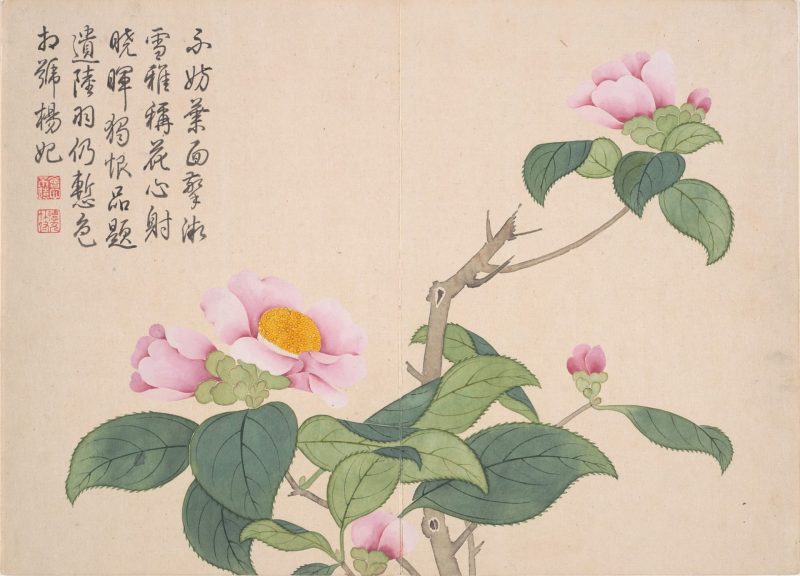 不妨葉面擎冰
雪雅稱花心射
曉暉獨恨品題
遺陸羽仍慙色
相號楊妃